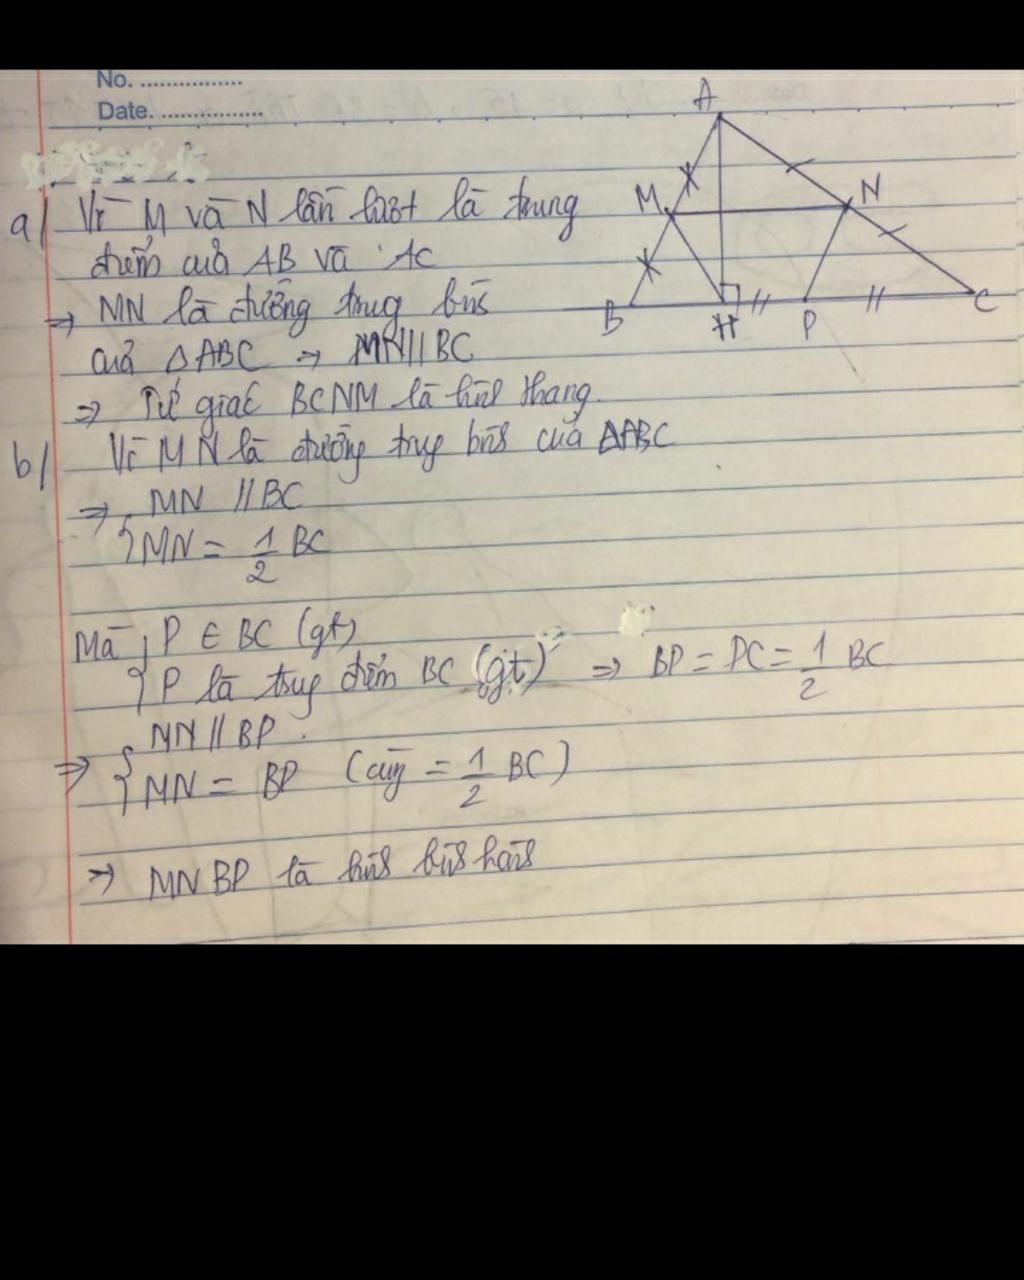 No. ................
Date. ................
A
M
N
B
H
P
C
a/ Vì M và N lần lượt là trung
điểm của AB và AC
⇒ MN là đường trug bìn
của △ABC ⇒ MN//BC
⇒ Tứ giác BCNM là hìn thang.
b/ Vì MN là đường trug bìn của △ABC
⇒ { MN // BC
MN = 1/2 BC
Mà { P ∈ BC (gt)
P là trug điểm BC (gt) ⇒ BP = PC = 1/2 BC
⇒ { MN // BP.
MN = BP (cùg = 1/2 BC)
⇒ MNBP là hìn bìn hàn